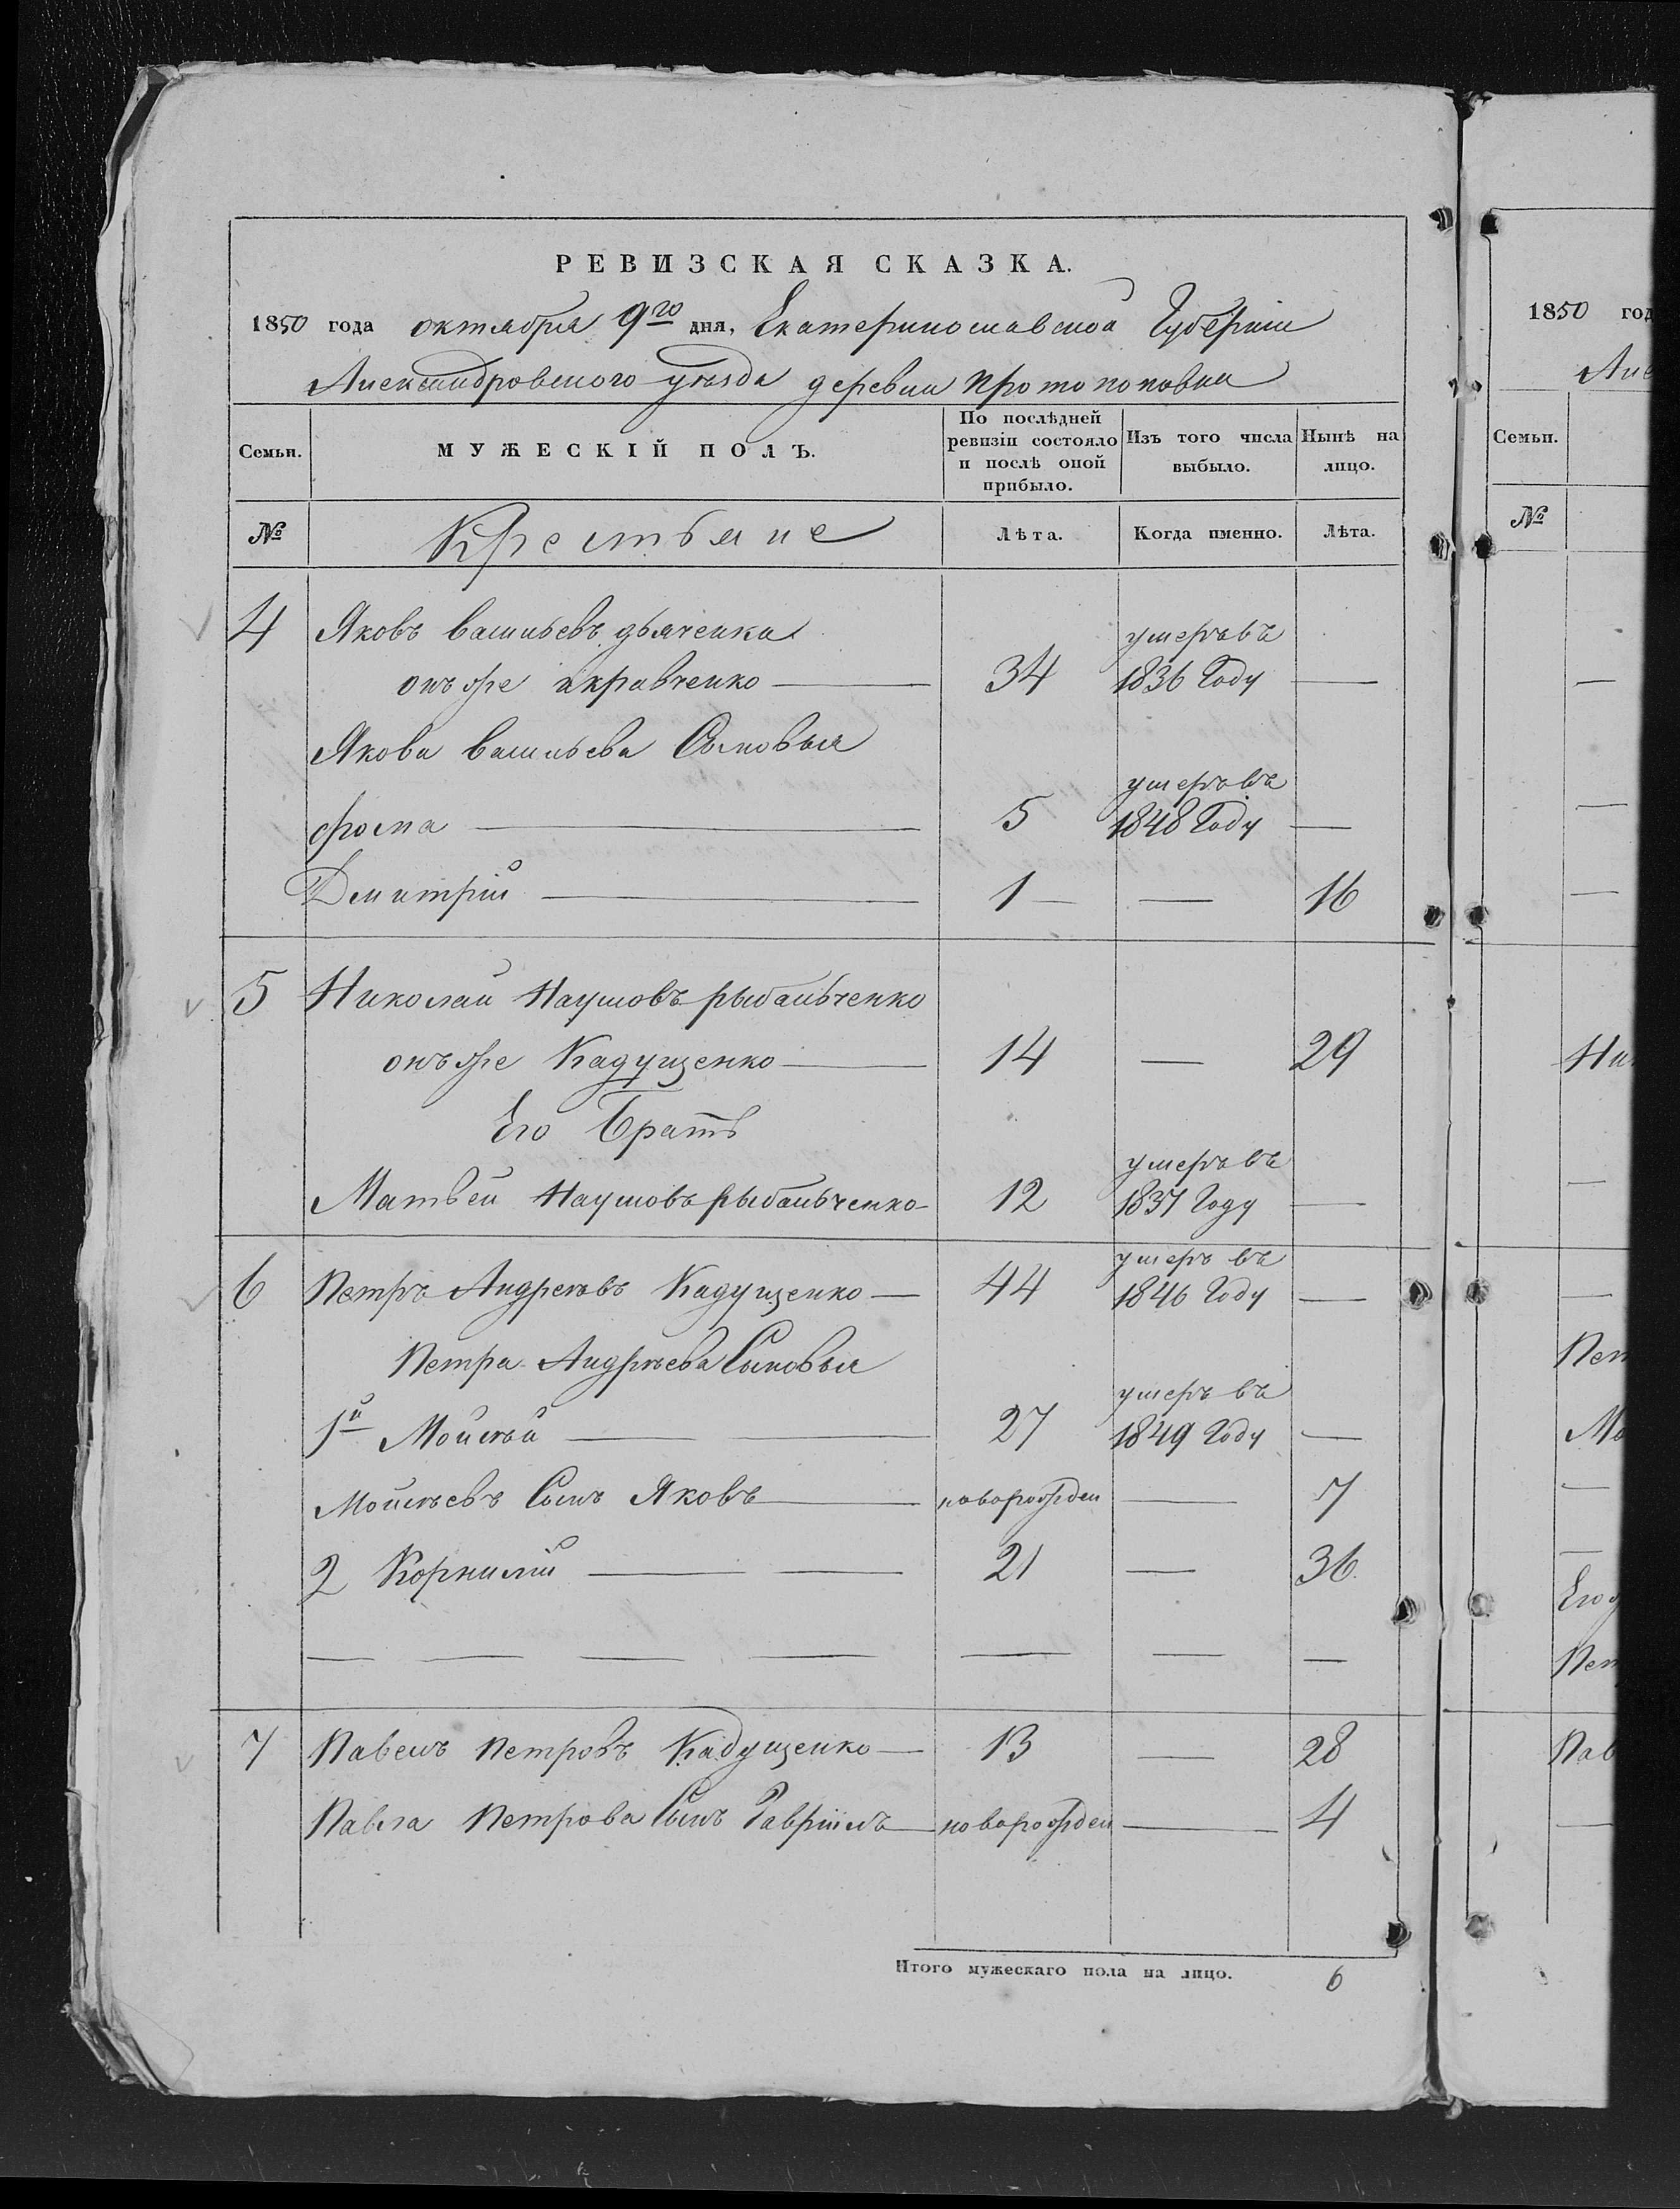 РЕВИЗСКАЯ СКАЗКА.
1850 года октября 9го дня, Екатеринославской Губернии
Александровского уѣзда деревни Протопоповки
Семьи. МУЖЕСКІЙ ПОЛЪ. По послѣдней ревизіи состояло и послѣ оной прибыло. Изъ того числа выбыло. Нынѣ на лицо.
№ Крестьяне Лѣта. Когда именно. Лѣта.
4 Яковъ васильевъ дьяченко
онъ же и кравченко — 34 умеръ въ 1836 Году —
Якова васильева Сыновья
фома — 5 умеръ въ 1848 Году —
Дмитрій — 1 — — 16
5 Николай Наумовъ рыбальченко
онъ же Кадущенко — 14 — 29
Его Братъ
Матвей Наумовъ рыбальченко — 12 умеръ въ 1837 Году —
6 Петръ Андреевъ Кадущенко — 44 умеръ въ 1846 Году —
Петра Андрѣева Сыновья
1й Мойсѣй — — 27 умеръ въ 1849 Году —
Мойсѣевъ Сынъ Яковъ — новорожден — 7
2 Корнилій — — 21 — 36
— — — — — — —
7 Павелъ Петровъ Кадущенко — 13 — 28
Павла Петрова Сынъ Гавріилъ — новорожден — 4
Итого мужескаго пола на лицо. 6
1850 год
Але
Семьи.
№
Ник
Пет
Мо
Его
Пет
Пав